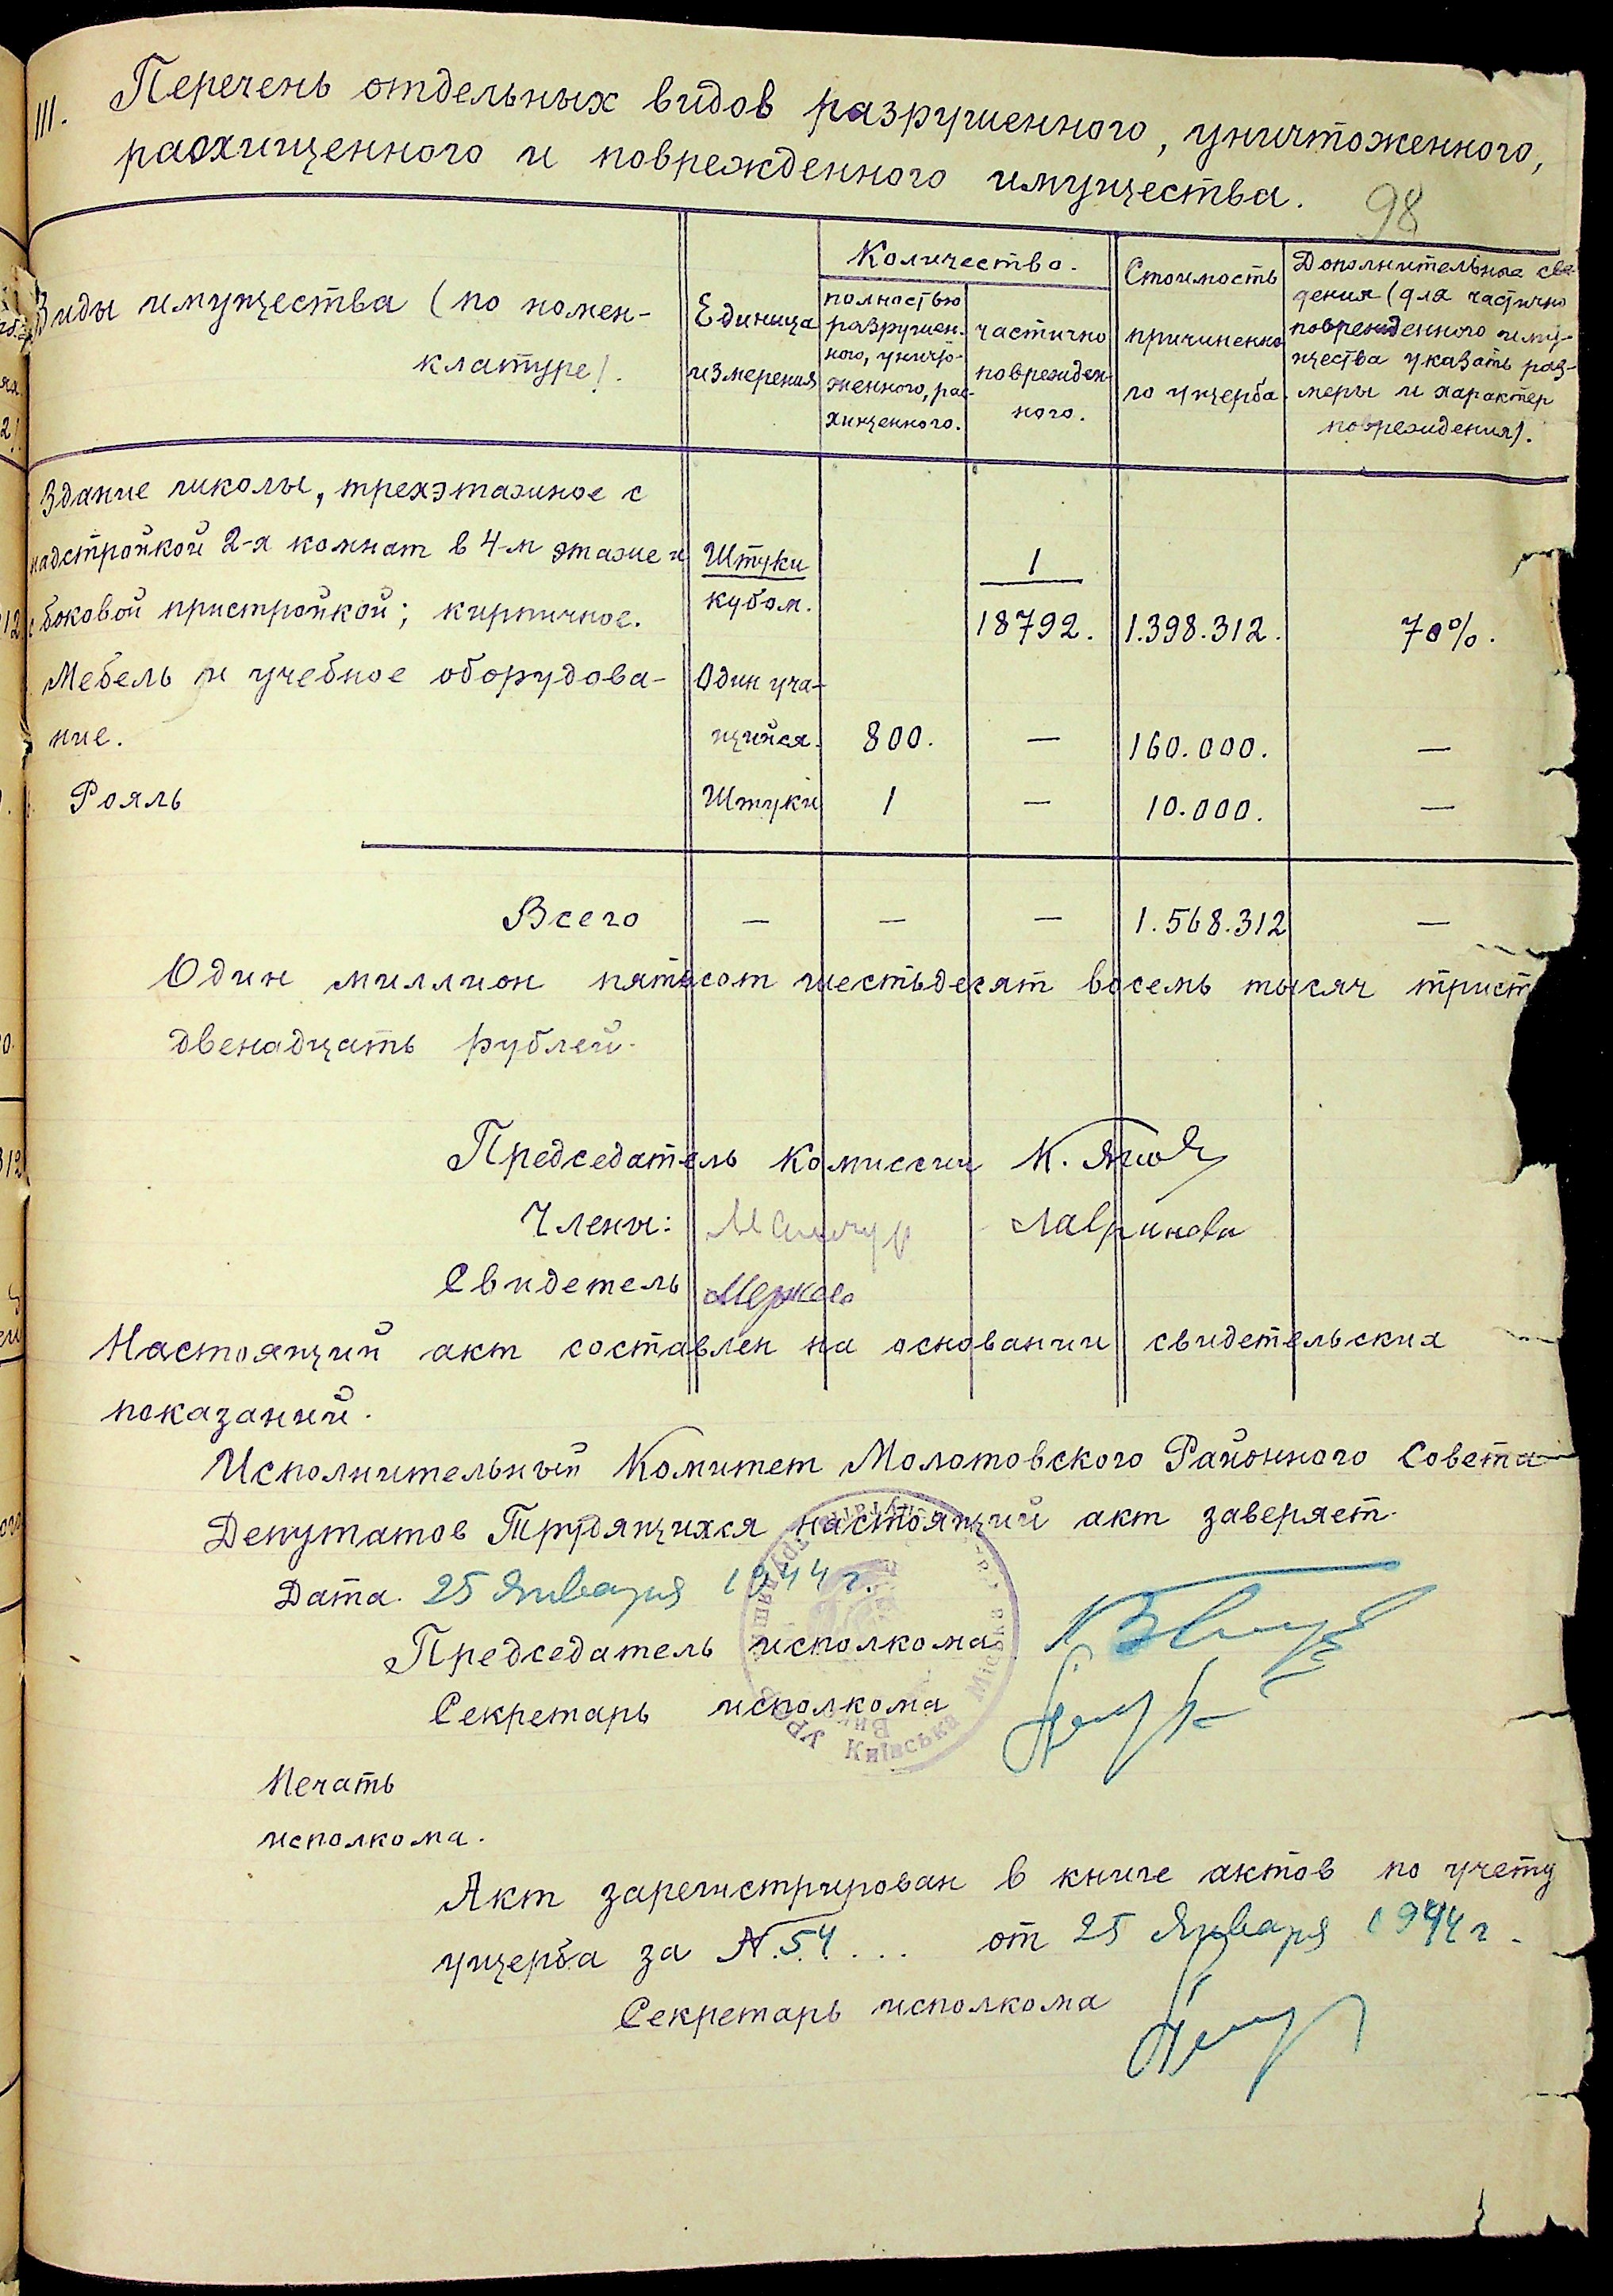 98
III. Перечень отдельных видов разрушенного, уничтоженного,
расхищенного и поврежденного имущества.
Виды имущества (по номен-
клатуре).
Единица
измерения
Количество.
полностью
разрушен-
ного, уничто-
женного, рас-
хищенного.
частично
поврежден-
ного.
Стоимость
причиненно
го ущерба.
Дополнительные све-
дения (для частично
поврежденного иму-
щества указать раз-
меры и характер
повреждения).
Здание школы, трехэтажное с
надстройкой 2-х комнат в 4-м этаже и
с боковой пристройкой; кирпичное.
Штуки
кубом.
1
18792.
1.398.312.
70%.
Мебель и учебное оборудова-
ние.
Один уча-
щийся.
800.
—
160.000.
—
Рояль
Штуки
1
—
10.000.
—
Всего — — — 1.568.312 —
Один миллион пятьсот шестьдесят восемь тысяч трист
двенадцать рублей.
Председатель комиссии
Члены:
Свидетель
Настоящий акт составлен на основании свидетельских
показаний.
Исполнительный Комитет Молотовского Районного Совета
Депутатов Трудящихся настоящий акт заверяет.
Дата. 25 Января 1944 г.
Председатель исполкома
Секретарь исполкома
УРСР Київська Міська
Печать
исполкома.
Акт зарегистрирован в книге актов по учету
ущерба за N.54... от 25 Января 1944 г.
Секретарь исполкома